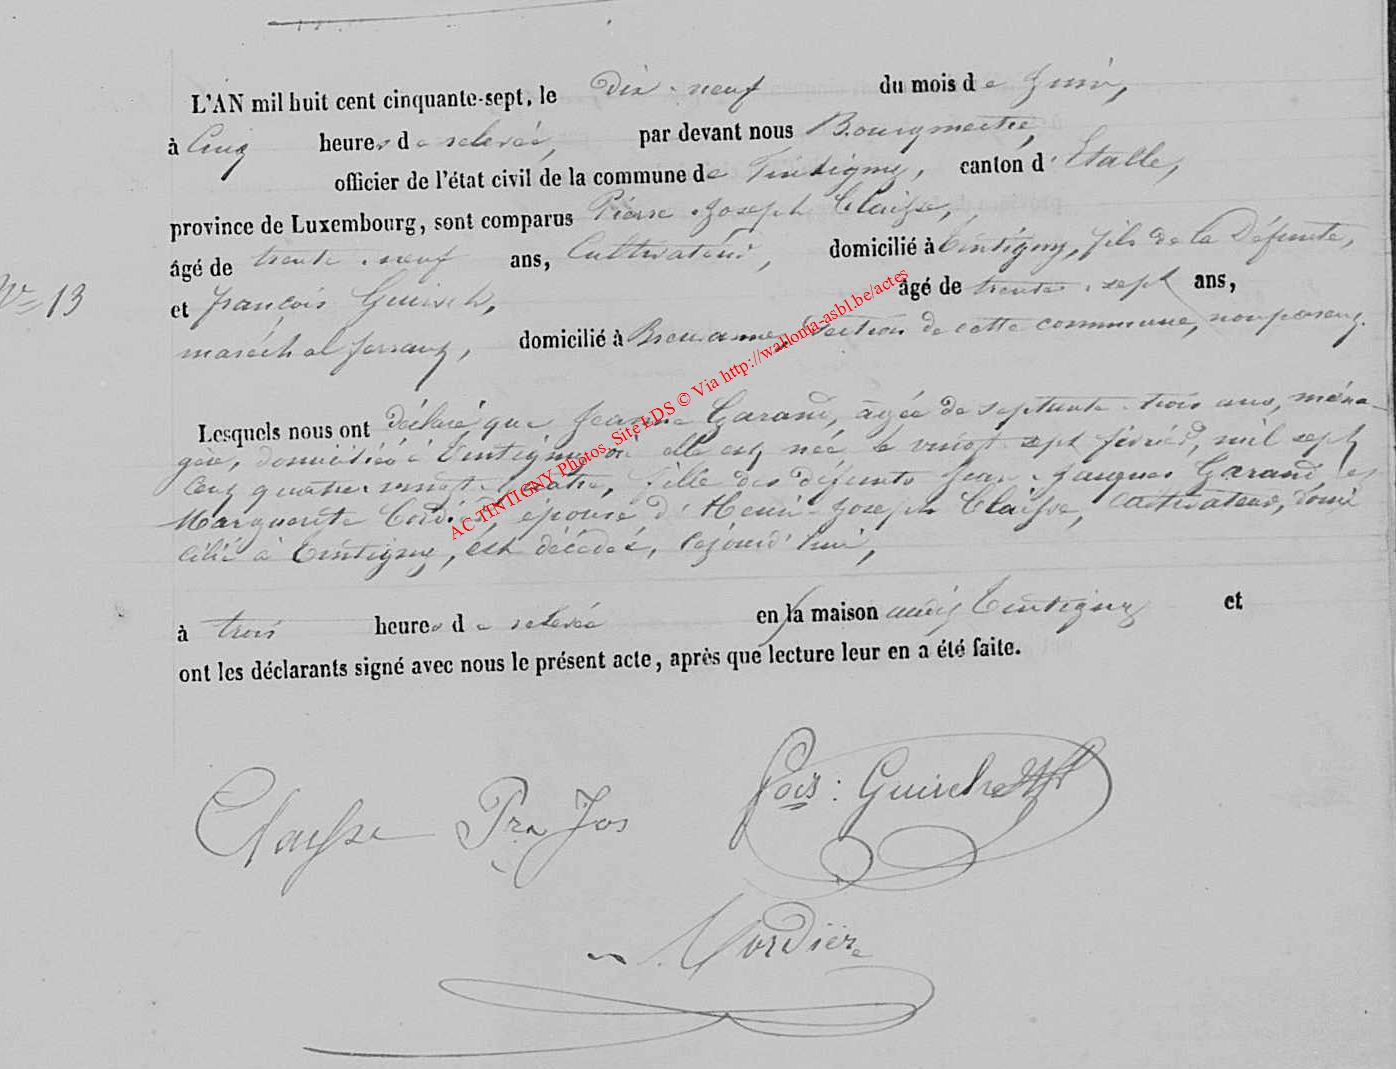 L'AN mil huit cent cinquante-sept, le Dix-neuf du mois de Juin,
à Cinq heures de relevée, par devant nous Bourgmestre,
officier de l'état civil de la commune de Tintigny, canton d'Etalle,
province de Luxembourg, sont comparus Pierre Joseph Claisse,
âgé de trente-neuf ans, Cultivateur, domicilié à Tintigny, fils de la Défunte,
N° 13
et François Guirsch, âgé de trente-sept ans,
maréchal ferrant, domicilié à Breuvanne, Section de cette commune, non parent.
Lesquels nous ont déclaré que Jeanne Garand, âgée de septante-trois ans, ména-
gère, domiciliée à Tintigny où elle est née le vingt sept février, mil sept
Cent quatre-vingt-quatre, fille des défunts Jean-Jacques Garand, et
Marguerite Cordier, épouse d'Henri-Joseph Claisse, Cultivateur, domi
cilié à Tintigny, est décédée, cejourd'hui,
à trois heures de relevée en sa maison audit Tintigny et
ont les déclarants signé avec nous le présent acte, après que lecture leur en a été faite.
Claisse Pre Jos fois: Guirsch
Cordier
AC TINTIGNY Photos, Site LDS © Via http://wallonia-asbl.be/actes